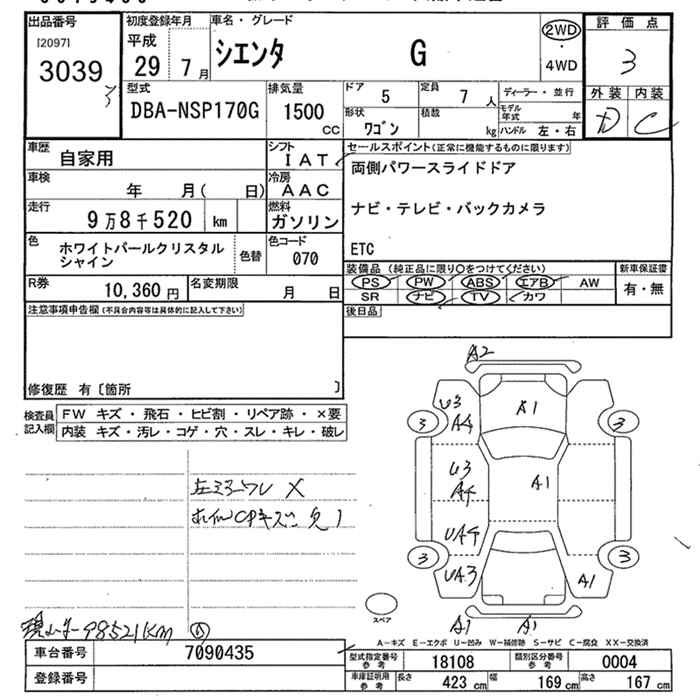 出品番号
[2097]
3039
初度登録年月
平成
29 7月
車名・グレード
シエンタ G
2WD
・
4WD
評価点
3
外装 内装
D C
型式
DBA-NSP170G
排気量
1500
CC
ドア 5
定員 7 人
形状 ワゴン
積載 kg
ディーラー・並行
モデル年式 年
ハンドル 左・右
車歴 自家用
シフト IAT
車検 年 月( 日)
冷房 AAC
走行 9万8千520 km
燃料 ガソリン
色 ホワイトパールクリスタル
シャイン
色替
色コード 070
R券 10,360 円
名変期限 月 日
セールスポイント(正常に機能するものに限ります)
両側パワースライドドア
ナビ・テレビ・バックカメラ
ETC
装備品(純正品に限り○をつけてください)
PS PW ABS エアB AW
SR ナビ TV カワ
新車保証書
有・無
後日品
注意事項申告欄(不具合内容等は具体的に記入して下さい)
修復歴 有〔箇所 〕
検査員記入欄
FW キズ・飛石・ヒビ割・リペア跡・×要
内装 キズ・汚レ・コゲ・穴・スレ・キレ・破レ
左ミラーワレ X
A2
U3
A4
A1
3
3
U3
A4
A1
UA4
3
3
UA3
A1
A1
A1
スペア
98521KM
A-キズ E-エクボ U-凹み W-補修跡 S-サビ C-腐食 XX-交換済
車台番号 7090435
登録番号
型式指定番号参考 18108
類別区分番号参考 0004
車庫証明用参考 長さ 423 cm 幅 169 cm 高さ 167 cm